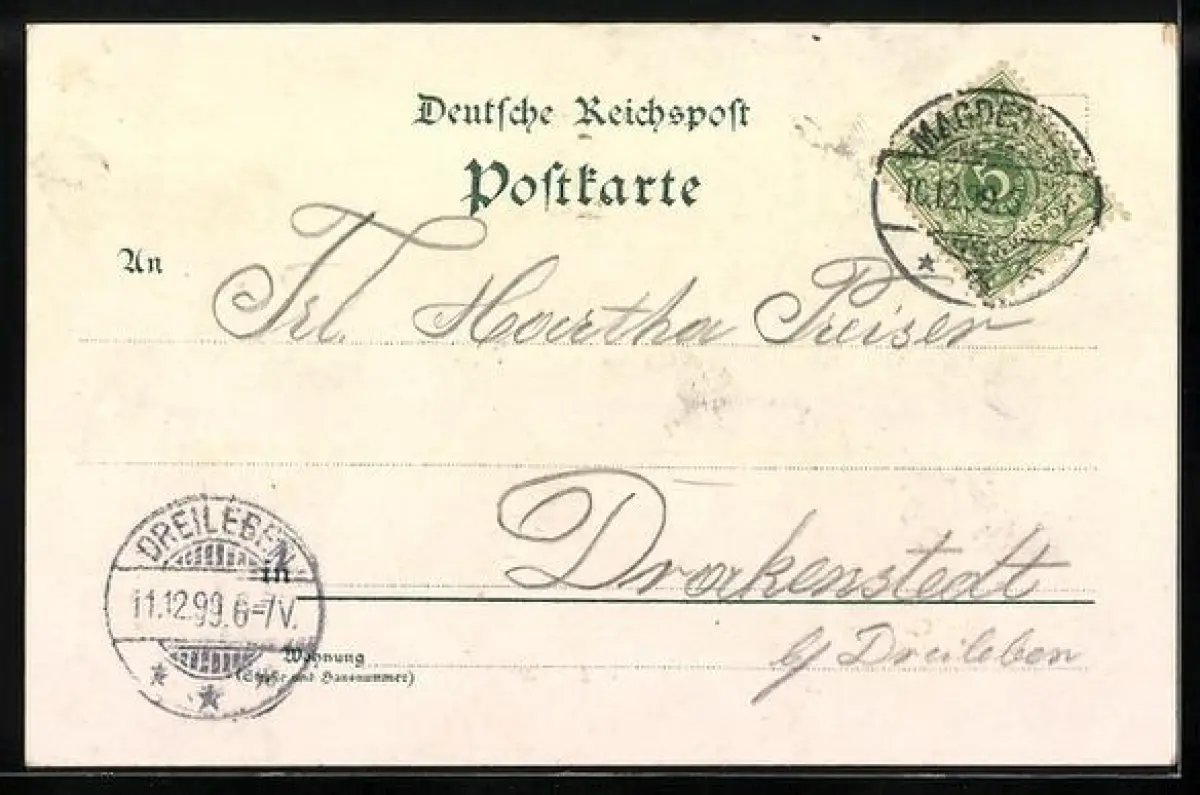 Deutsche Reichspost
Postkarte
An
Frl. Hertha Preiser
MAGDEBURG
10.12.99.
5
REICHSPOST
Drakenstedt
b/ Dreileben
in
DREILEBEN
11.12.99. 6-7V.
Wohnung
(Straße und Hausnummer)